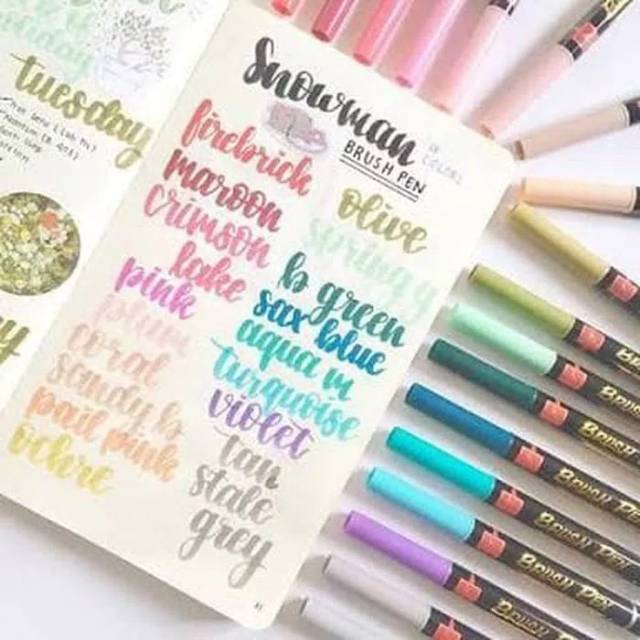 tuesday
Snowman
BRUSH PEN
COLORS
firebrick
maroon
crimson
lake
pink
plum
coral
sandy b
pail pink
ochre
olive
spring g
b green
sax blue
aqua m
turquoise
violet
tan
stale
grey
BRUSH PEN
BRUSH PEN
BRUSH PEN
BRUSH PEN